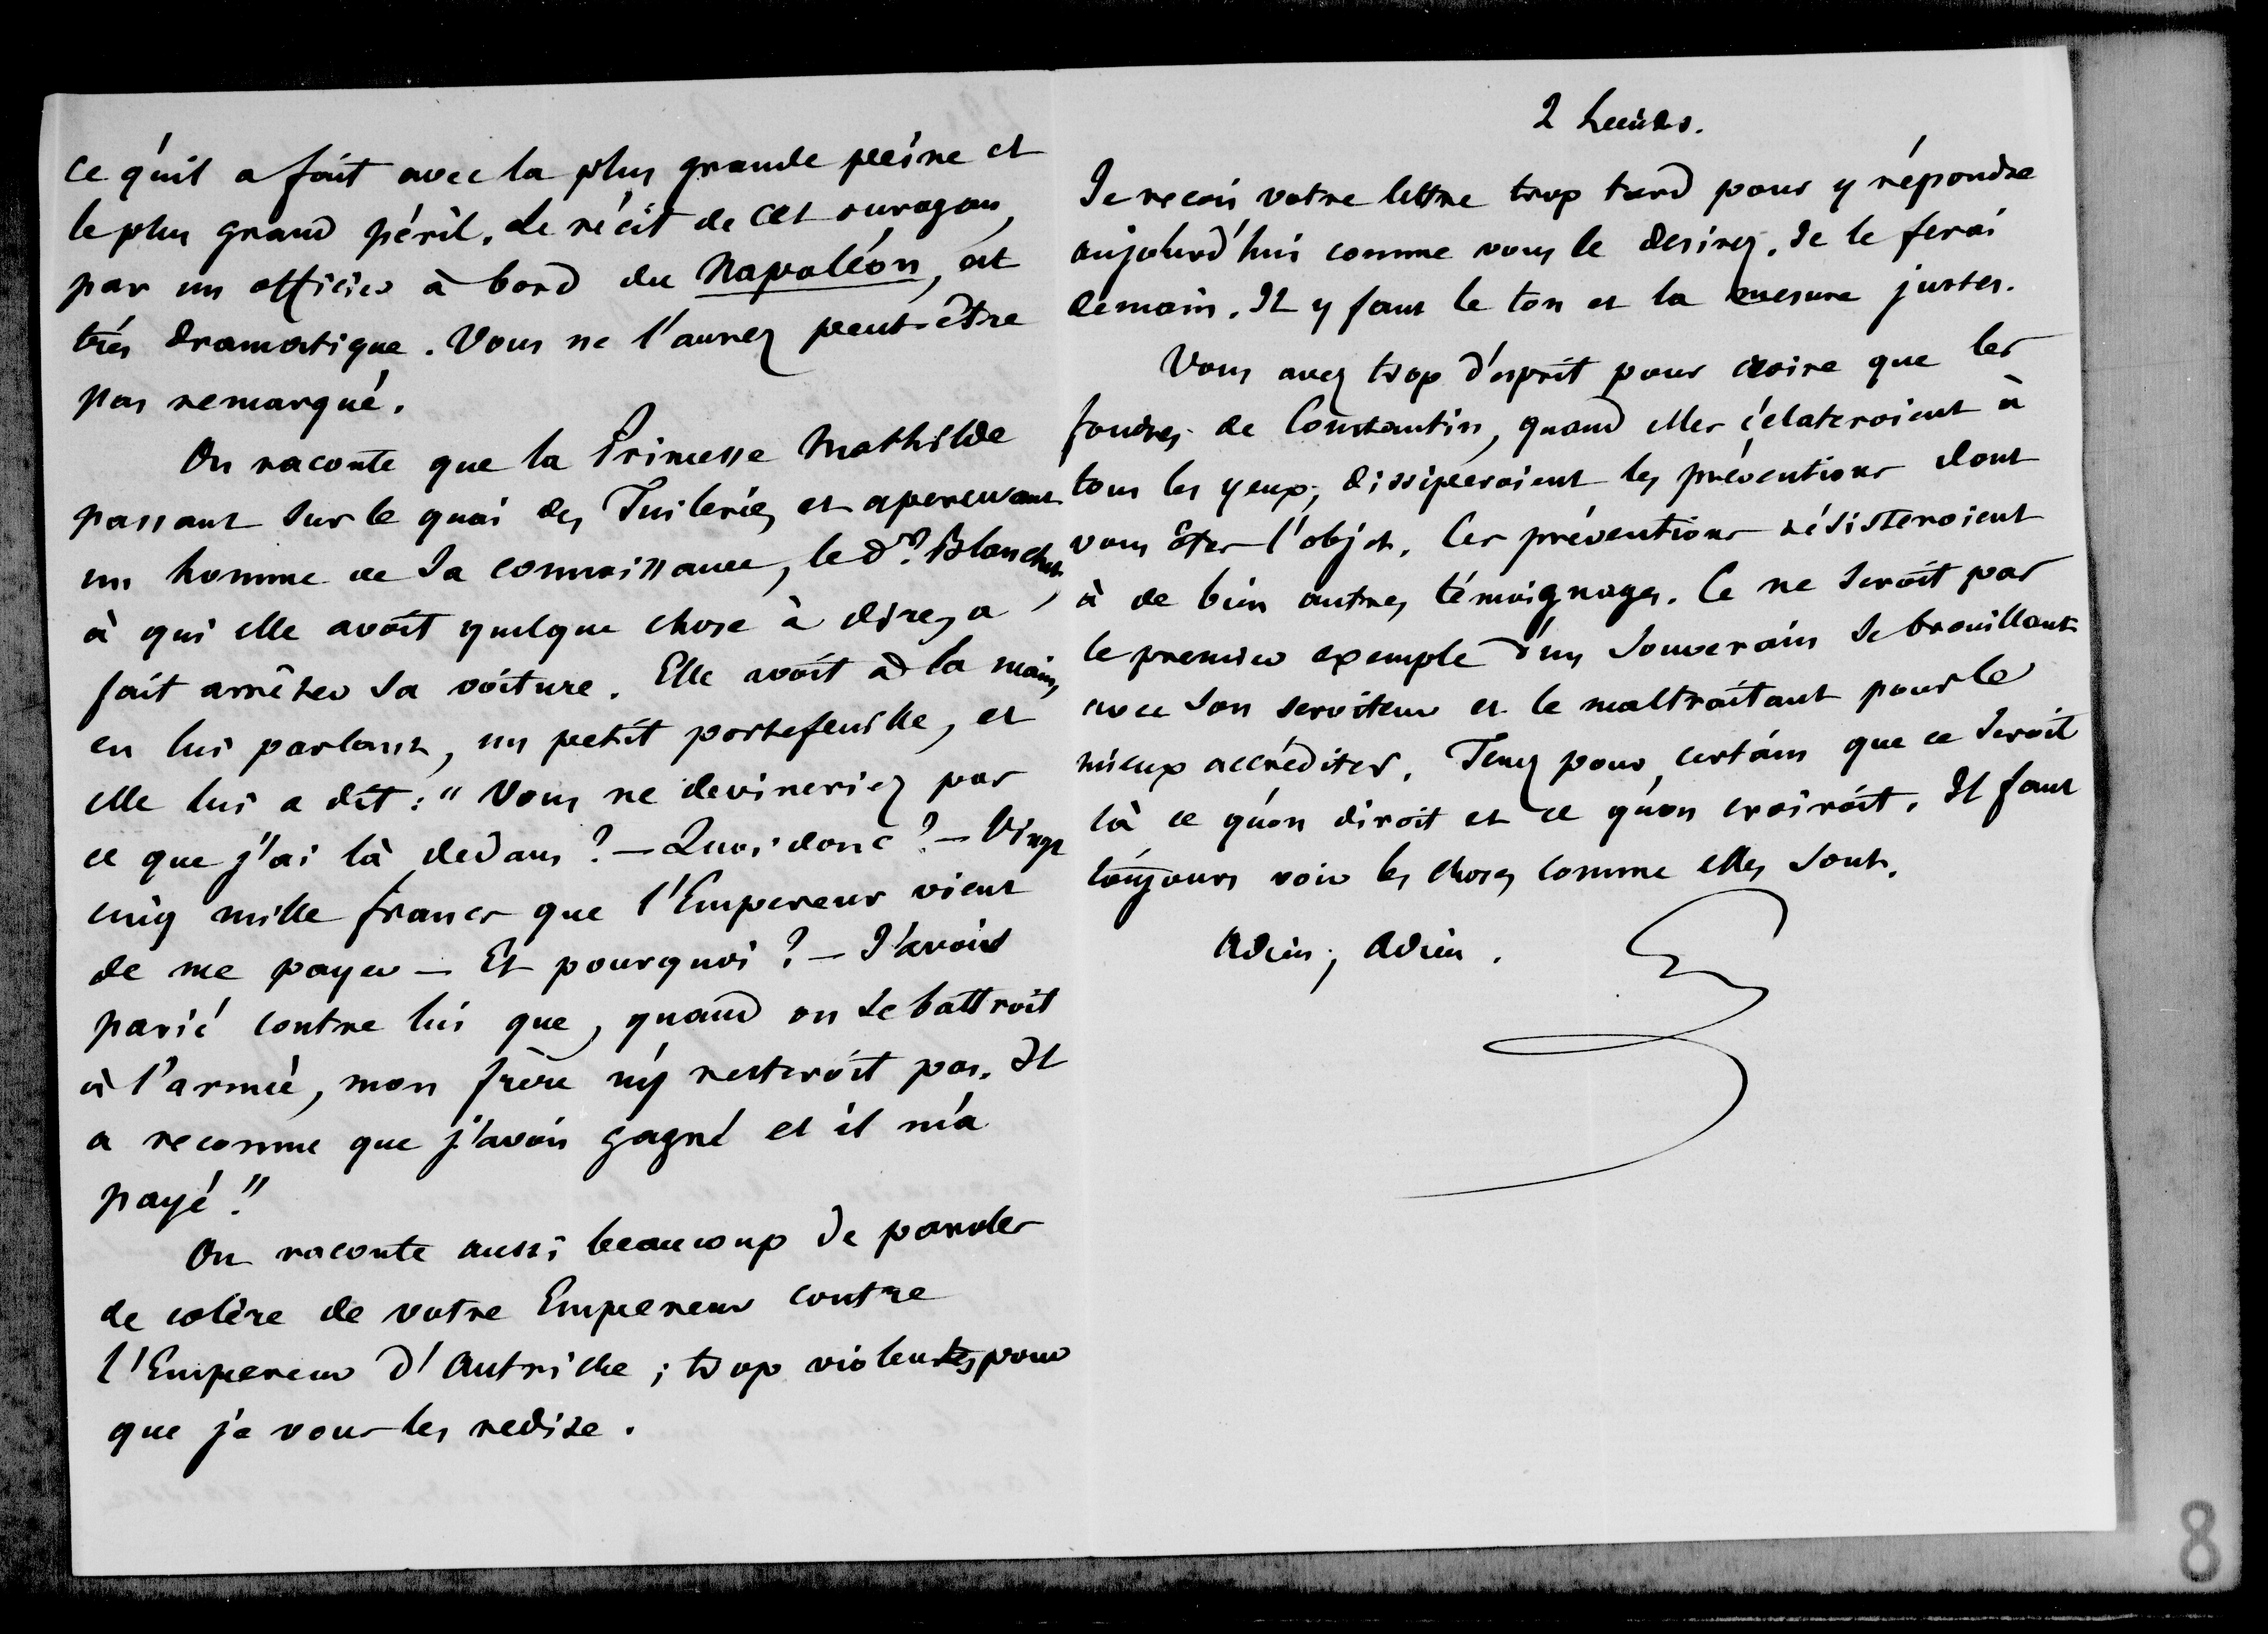 ce qu'il a fait avec la plus grande peine et
le plus grand péril. Le récit de cet ouragan,
par un officier à bord du Napoléon, est
très dramatique. Vous ne l'aurez peut-être
pas remarqué.
On raconte que la Princesse Mathilde
passant sur le quai des Tuileries et apercevant
un homme de sa connaissance, le dr. Blanche,
à qui elle avoit quelque chose à dire, a
fait arrêter sa voiture. Elle avoit à la main,
en lui parlant, un petit portefeuille, et
elle lui a dit : " Vous ne devineriez pas
ce que j'ai là dedans ? — Quoi donc ? — Vingt
cinq mille francs que l'Empereur vient
de me payer — Et pourquoi ? — J'avois
parié contre lui que, quand on se battroit
à l'armée, mon frère n'y resteroit pas. Il
a reconnu que j'avois gagné et il m'a
payé."
On raconte aussi beaucoup de paroles
de colère de votre Empereur contre
l'Empereur d'Autriche ; trop violentes pour
que je vous les redise.
2 heures.
Je recois votre lettre trop tard pour y répondre
aujourd'hui comme vous le desirez. Je le ferai
demain. Il y faut le ton et la mesure justes.
Vous avez trop d'esprit pour croire que les
foudres de Constantin, quand elles éclateroient à
tous les yeux, dissiperoient les préventions dont
vous êtes l'objet. Ces préventions résisteroient
à de bien autres témoignages. Ce ne seroit pas
le premier exemple d'un Souverain se brouillant
avec son serviteur et le maltraitant pour le
mieux accréditer. Tenez pour certain que ce seroit
là ce qu'on diroit et ce qu'on croiroit. Il faut
toujours voir les choses comme elles sont.
Adieu, Adieu.
8